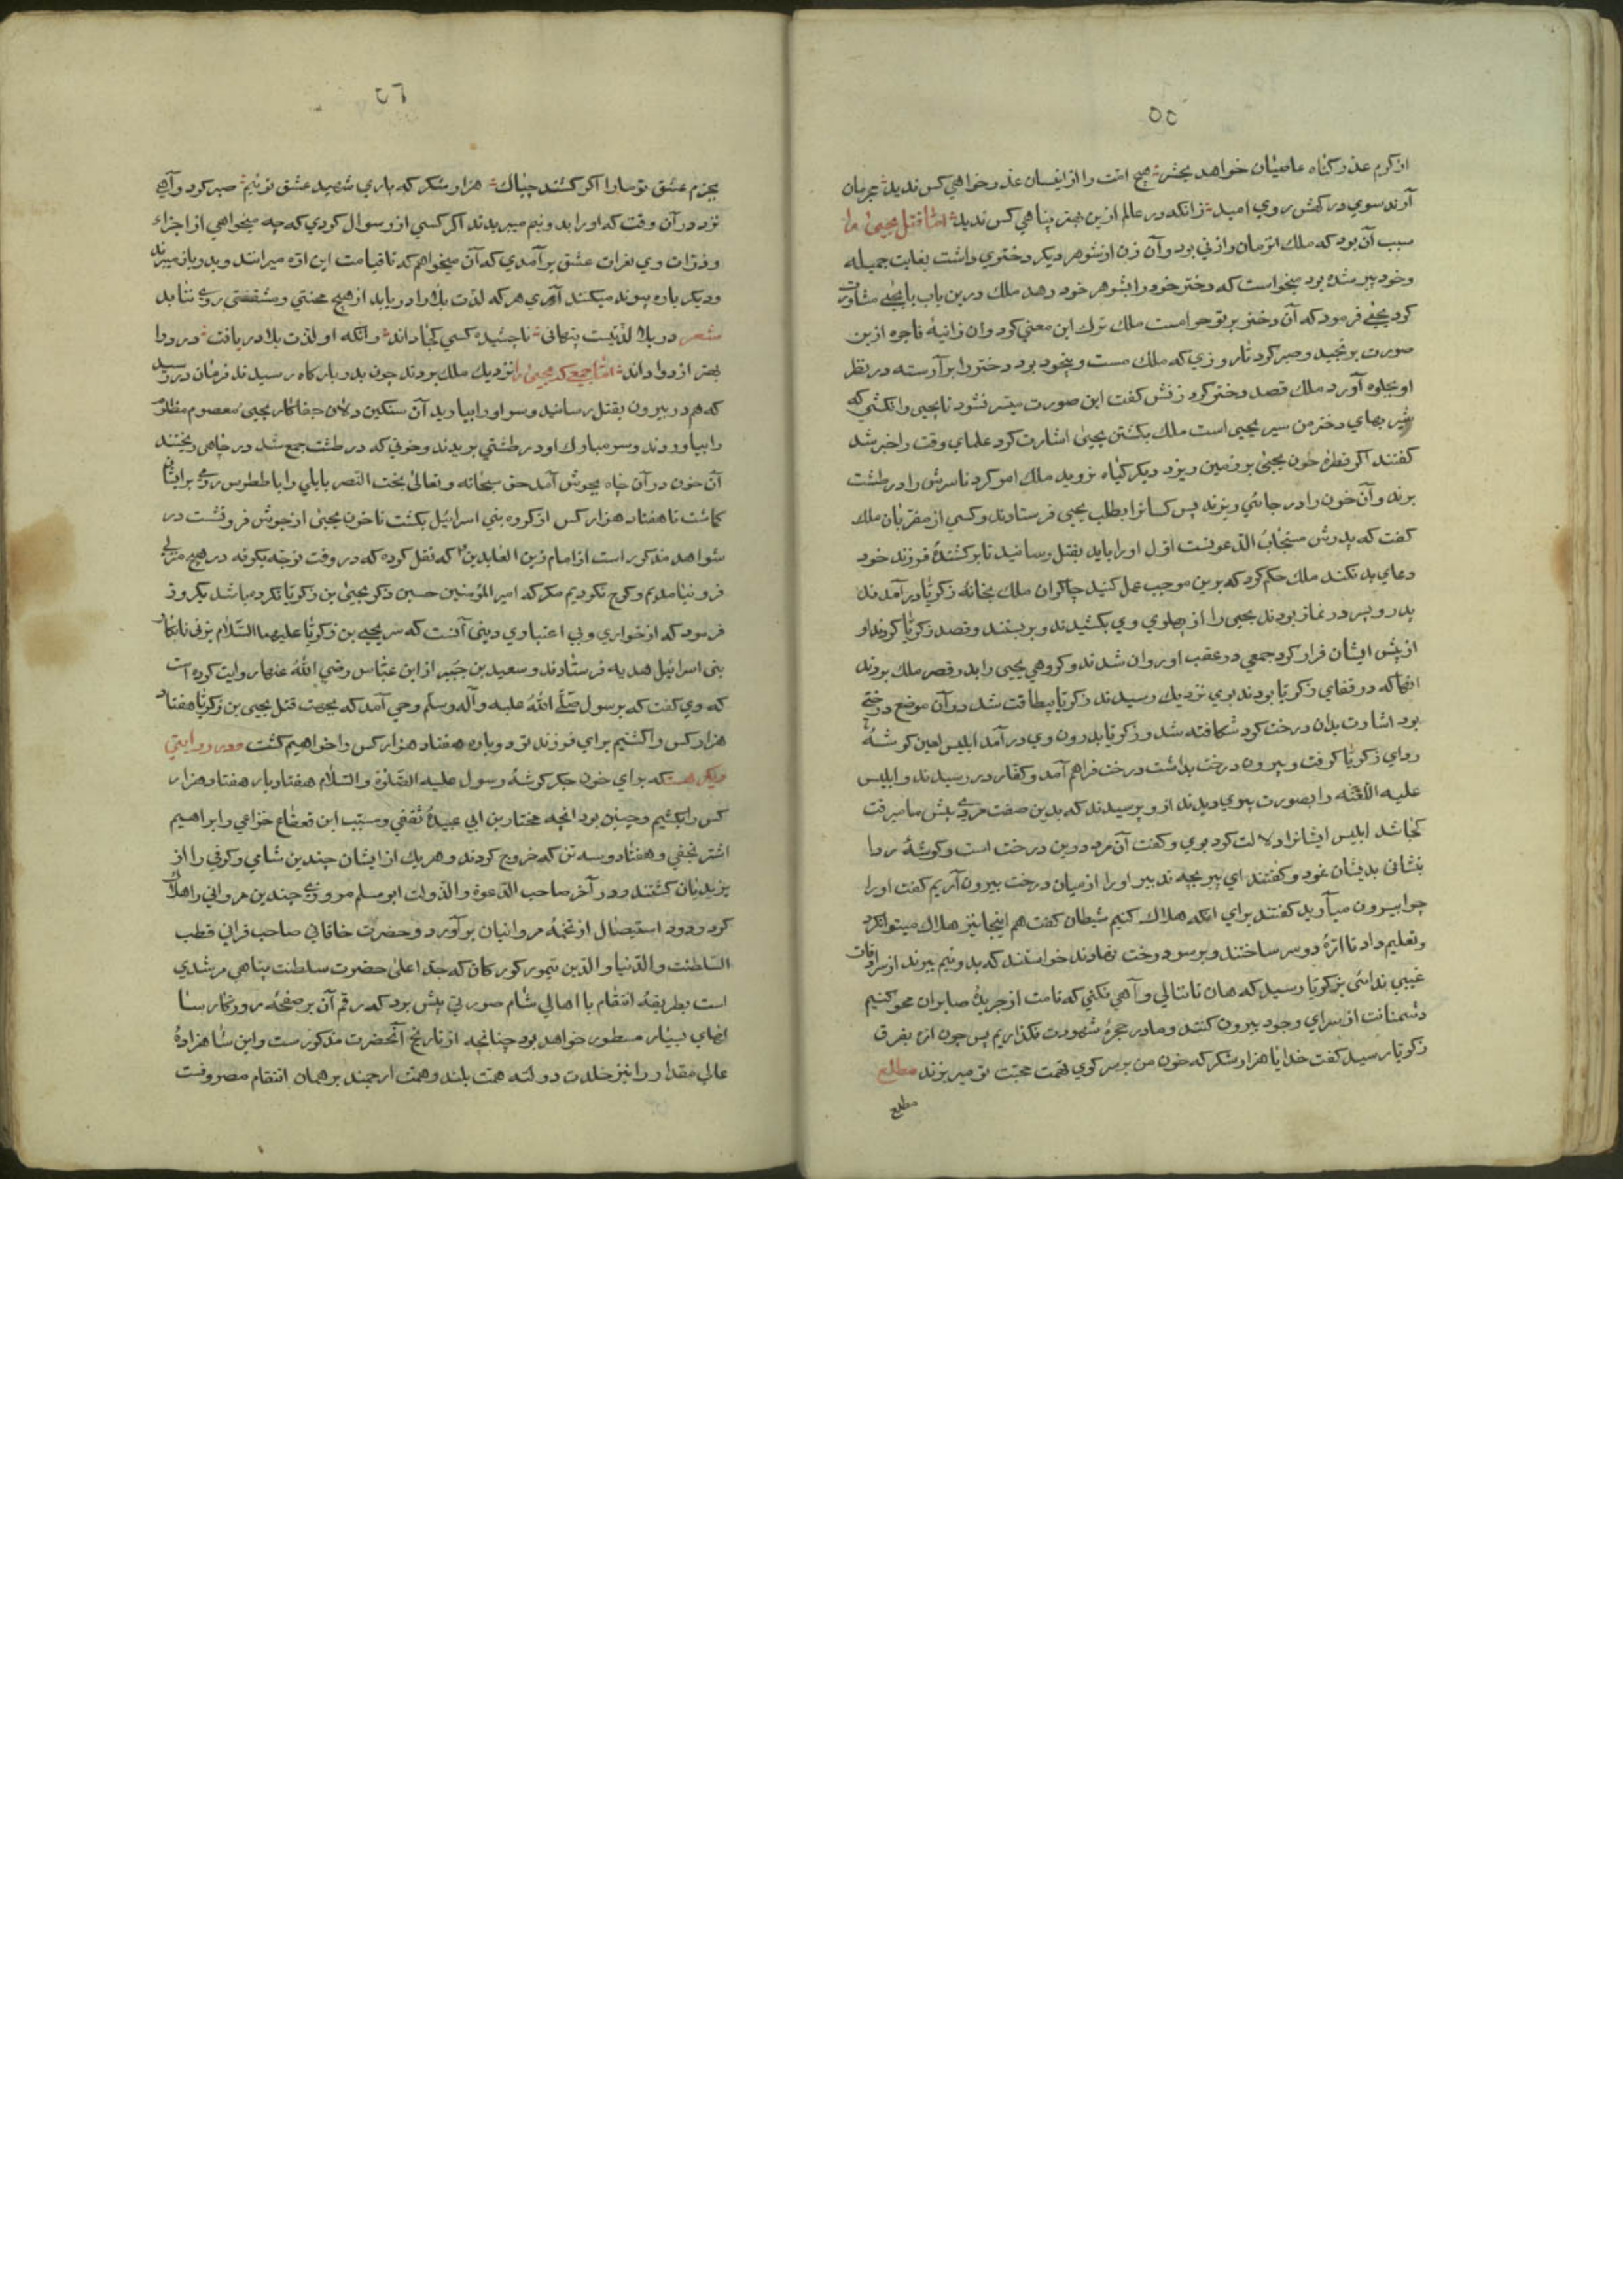 ٥٥
از کرم عذر گناه عاصیان خواهد بحشر هیچ امت را از اینسان عذر خواهی کس ندید مجرمان
آرند سوی درگهش روی امید زانکه در عالم ازین بهتر پناهی کس ندید اما قتل یحیی را
سبب آن بود که ملک انزمان را زنی بود و آن زن از شوهر دیگر دختری داشت بغایت جمیله
و خود پیر شده بود میخواست که دختر خود را بشوهر خود دهد ملک درین باب با یحیی مشاورت
کرد یحیی فرمود که آن دختر بر تو حرامست ملک ترک این معنی کرد و ان زانیهٔ فاجره ازین
صورت برنجید و صبر کرد تا روزی که ملک مست و بیخود بود دختر را بر آراسته در نظر
او بجلوه آورد ملک قصد دختر کرد زنش گفت این صورت میسر نشود تا یحیی را نکشی که
شیر بهای دختر من سر یحیی است ملک بکشتن یحیی اشارت کرد علمای وقت را خبر شد
گفتند اگر قطرهٔ خون یحیی بر زمین ریزد دیگر گیاه نروید ملک امر کرد تا سرش را در طشت
برند و آن خون را در جائی ریزند پس کسانرا بطلب یحیی فرستادند و کسی از مقربان ملک
گفت که پدرش مستجاب الدعوتست اول او را باید بقتل رسانید تا بر کشندهٔ فرزند خود
دعای بد نکند ملک حکم کرد که برین موجب عمل کنید چاکران ملک بخانهٔ زکریا در آمدند
پدر و پسر در نماز بودند یحیی را از پهلوی وی بکشیدند و بربستند و قصد زکریا کردند او
از پیش ایشان فرار کرد جمعی در عقب او روان شدند و گروهی یحیی را بدر قصر ملک بردند
انها که در قفای زکریا بودند بوی نزدیک رسیدند زکریا بیطاقت شد در آن موضع درختی
بود اشارت بدان درخت کرد شکافته شد و زکریا بدرون وی در آمد ابلیس لعین گوشهٔ
ردای زکریا گرفت و بیرون درخت بداشت درخت فراهم آمد و کفار در رسیدند و ابلیس
علیه اللعنه را بصورت پیری دیدند ازو پرسیدند که بدین صفت مردی پیش ما میرفت
کجا شد ابلیس ایشانرا دلالت کرد بوی و گفت آن مرد درین درخت است و گوشهٔ ردا
بنشانی بدیشان نمود و گفتند ای پیر بچه تدبیر او را از میان درخت بیرون آریم گفت او را
چرا بیرون میآرید گفتند برای انکه هلاک کنیم شیطان گفت هم اینجا نیز هلاک میتوانکرد
و تعلیم داد تا ارهٔ دو سر ساختند و بر سر درخت نهادند خواستند که بدو نیم ببرند از سرادقات
غیبی ندائی بزکریا رسید که هان تا ننالی و آهی نکنی که نامت از جریدهٔ صابران محو کنیم
دشمنانت از سرای وجود بیرون کنند و ما در حجرهٔ شهودت نگذاریم پس چون اره بفرق
زکریا رسید گفت خدایا هزار شکر که خون من بر سر کوی تهمت محبت تو میریزند مطلع
مطلع
٥٦
بجرم عشق تو ما را اگر کشند چباک هزار شکر که باری شهید عشق توئیم صبر کرد و آهی
نزد در آن وقت که او را بدو نیم میبریدند اگر کسی ازو سوال کردی که چه میخواهی از اجزاء
و ذرات وی نعرات عشق بر آمدی که آن میخواهم که تا قیامت این اره میرانند و بدو پاره میبرند
و دیگر باره پیوند میکنند آری هر که لذت بلا را دریابد از هیچ محنتی و مشقتی روی نتابد
شعر در بلا لذتیست پنهانی ناچشیده کسی کجا داند وانکه او لذت بلا دریافت درد را
بهتر از دوا داند اما جمعی که یحیی را نزدیک ملک بردند چون بدر بارگاه رسیدند فرمان در رسید
که هم در بیرون بقتل رسانید و سر او را بیارید آن سنگین دلان جفاکار یحیی معصوم مظلوم
را بیاوردند و سر مبارک او در طشتی بریدند و خونی که در طشت جمع شد در چاهی ریختند
آن خون در آن چاه بجوش آمد حق سبحانه و تعالی بخت النصر بابلی را یا ططرس رومی بر ایشان
کماشت تا هفتاد هزار کس از گروه بنی اسرائیل بکشت تا خون یحیی از جوش فرو نشست در
شواهد مذکور است از امام زین العابدین که نقل کرده که در وقت توجه بکوفه در هیچ منزلی
فرو نیامدیم و کوچ نکردیم مگر که امیر المؤمنین حسین ذکر یحیی بن زکریا نکرده باشد یکروز
فرمود که از خواری و بی اعتباری دینی آنست که سر یحیی بن زکریا علیهما السلام بزنی نابکار
بنی اسرائیل هدیه فرستادند و سعید بن جبیر از ابن عباس رضی الله عنهما روایت کرده است
که وی گفت که برسول صلی الله علیه وآله وسلم وحی آمد که بجهت قتل یحیی بن زکریا هفتاد
هزار کس را کشتیم برای فرزند تو دوباره هفتاد هزار کس را خواهیم کشت و در روایتی
دیگر هست که برای خون جگر گوشهٔ رسول علیه الصلوة والسلام هفتاد بار هفتاد هزار
کس را بکشیم و چنین بود انچه مختار بن ابی عبیدهٔ ثقفی و مسیب ابن قعقاع خزاعی و ابراهیم
اشتر نجفی و هفتاد و سه تن که خروج کردند و هر یک از ایشان چندین شامی و کوفی را از
یزیدیان کشتند و در آخر صاحب الدعوة والدولت ابو مسلم مروزی چندین مروانی را هلاک
کرد و دود استیصال از تخمهٔ مروانیان بر آورد و حضرت خاقانی صاحب قرانی قطب
السلطنت والدنیا والدین تیمور کورکان که جد اعلی حضرت سلطنت پناهی مرشدی
است بطریقهٔ انتقام با اهالی شام صورتی پیش برد که رقم آن بر صفحهٔ روزگار سنا
انهای بسیار مسطور خواهد بود چنانچه از تاریخ آنحضرت مذکورست و این شاهزادهٔ
عالی مقدار را نیز خلدت دولته همت بلند و همت ارجمند بر همان انتقام مصروفست